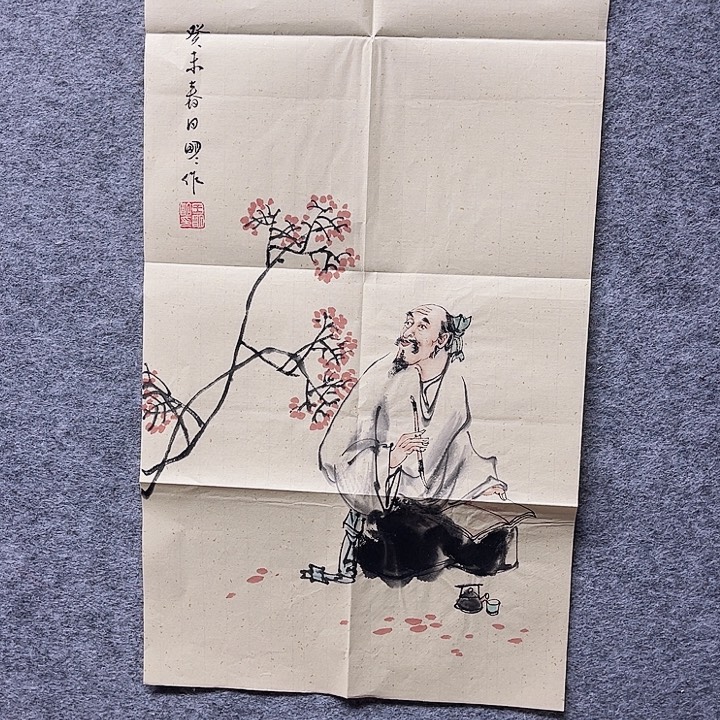 癸未春日明作